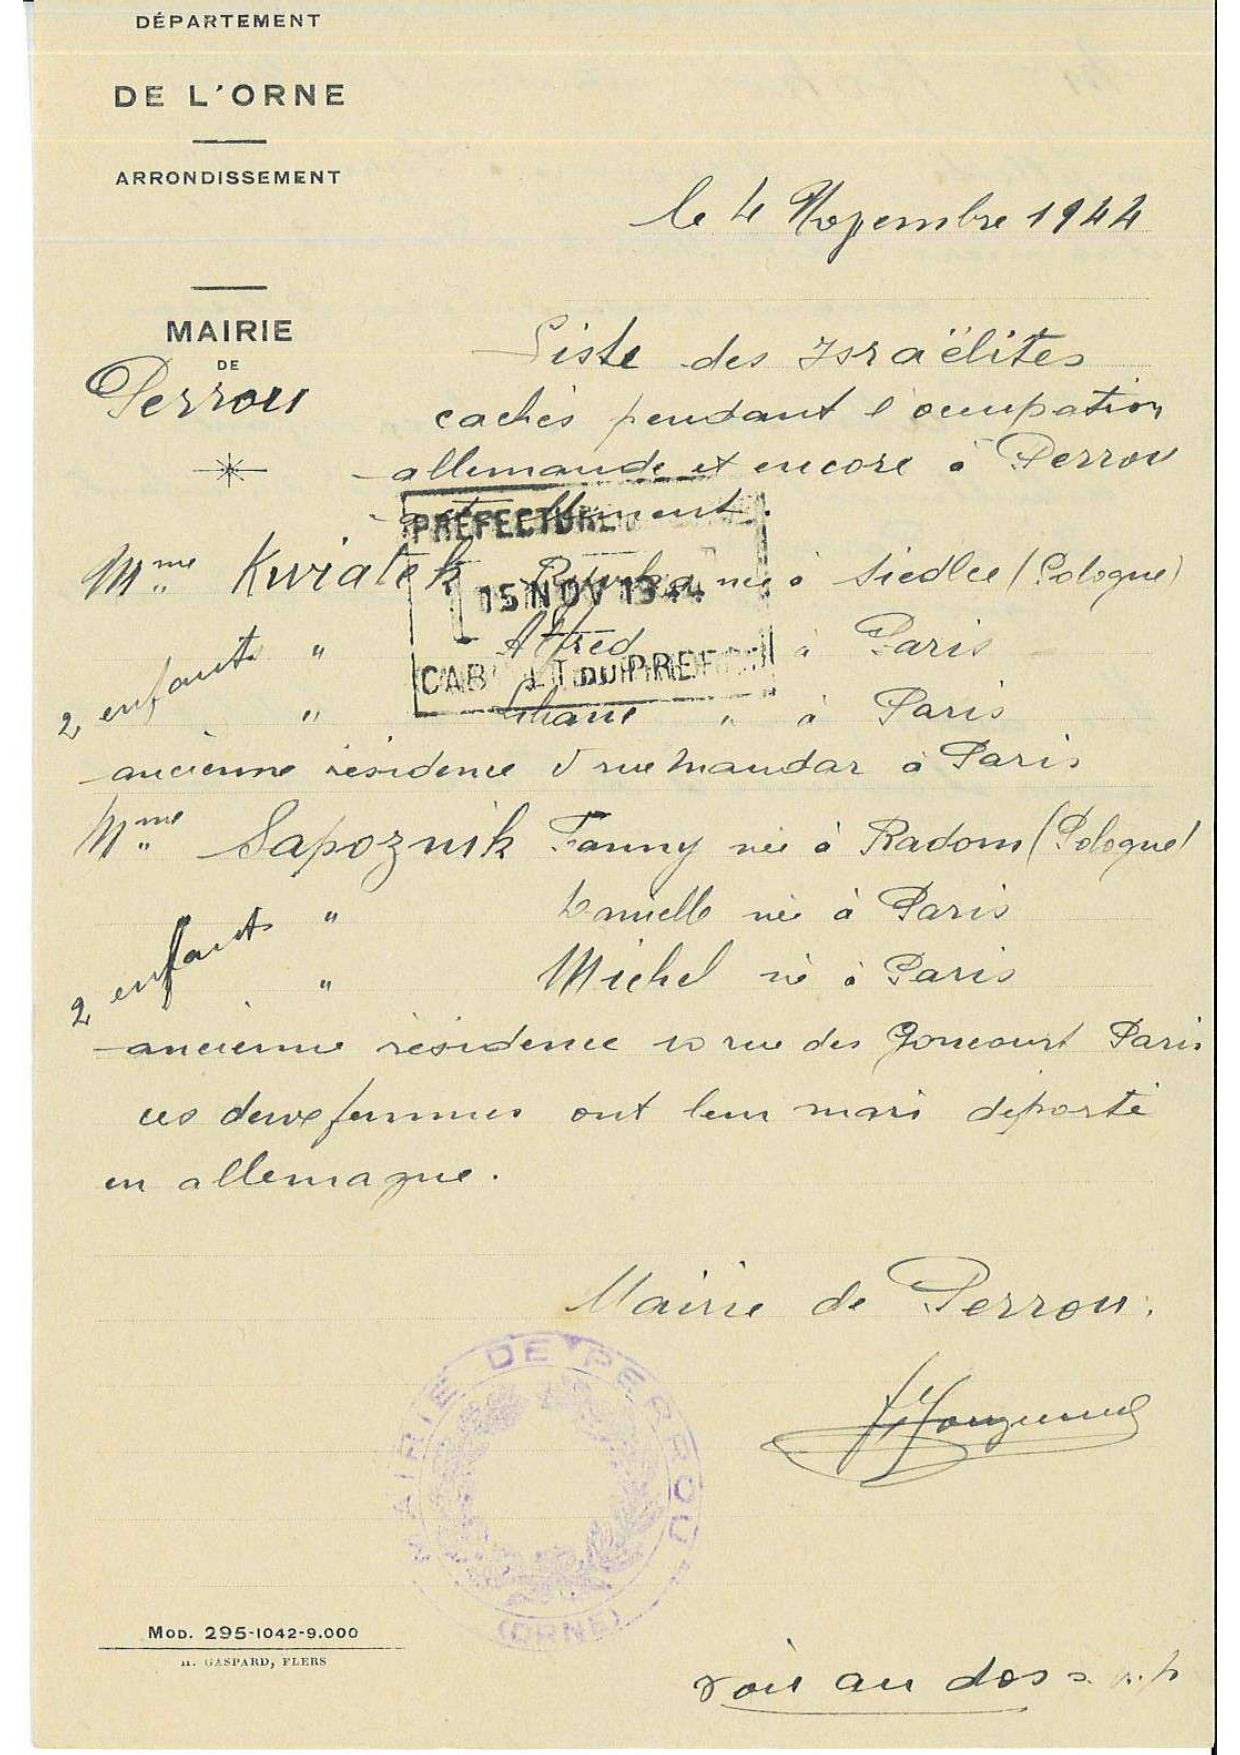 DÉPARTEMENT
DE L'ORNE
ARRONDISSEMENT
le 4 Novembre 1944
MAIRIE
DE
Perrou
Liste des Israëlites
cachés pendant l'occupation
allemande et encore à Perrou
actuellement.
PREFECTURE
15 NOV 1944
CABINET DU PREFET
Mme Kwiatek née à Siedlce (Pologne)
2 enfants " Alfred à Paris
" Liliane " à Paris
ancienne résidence 5 rue Mandar à Paris
Mme Sapoznik Fanny née à Radom (Pologne)
2 enfants " Danielle née à Paris
" Michel né à Paris
ancienne résidence 10 rue des Goncourt Paris
ces deux femmes ont leur mari déporté
en allemagne.
Mairie de Perrou.
MAIRIE DE PERROU
(ORNE)
MOD. 295-1042-9.000
H. GASPARD, FLERS
voir au dos s.v.p